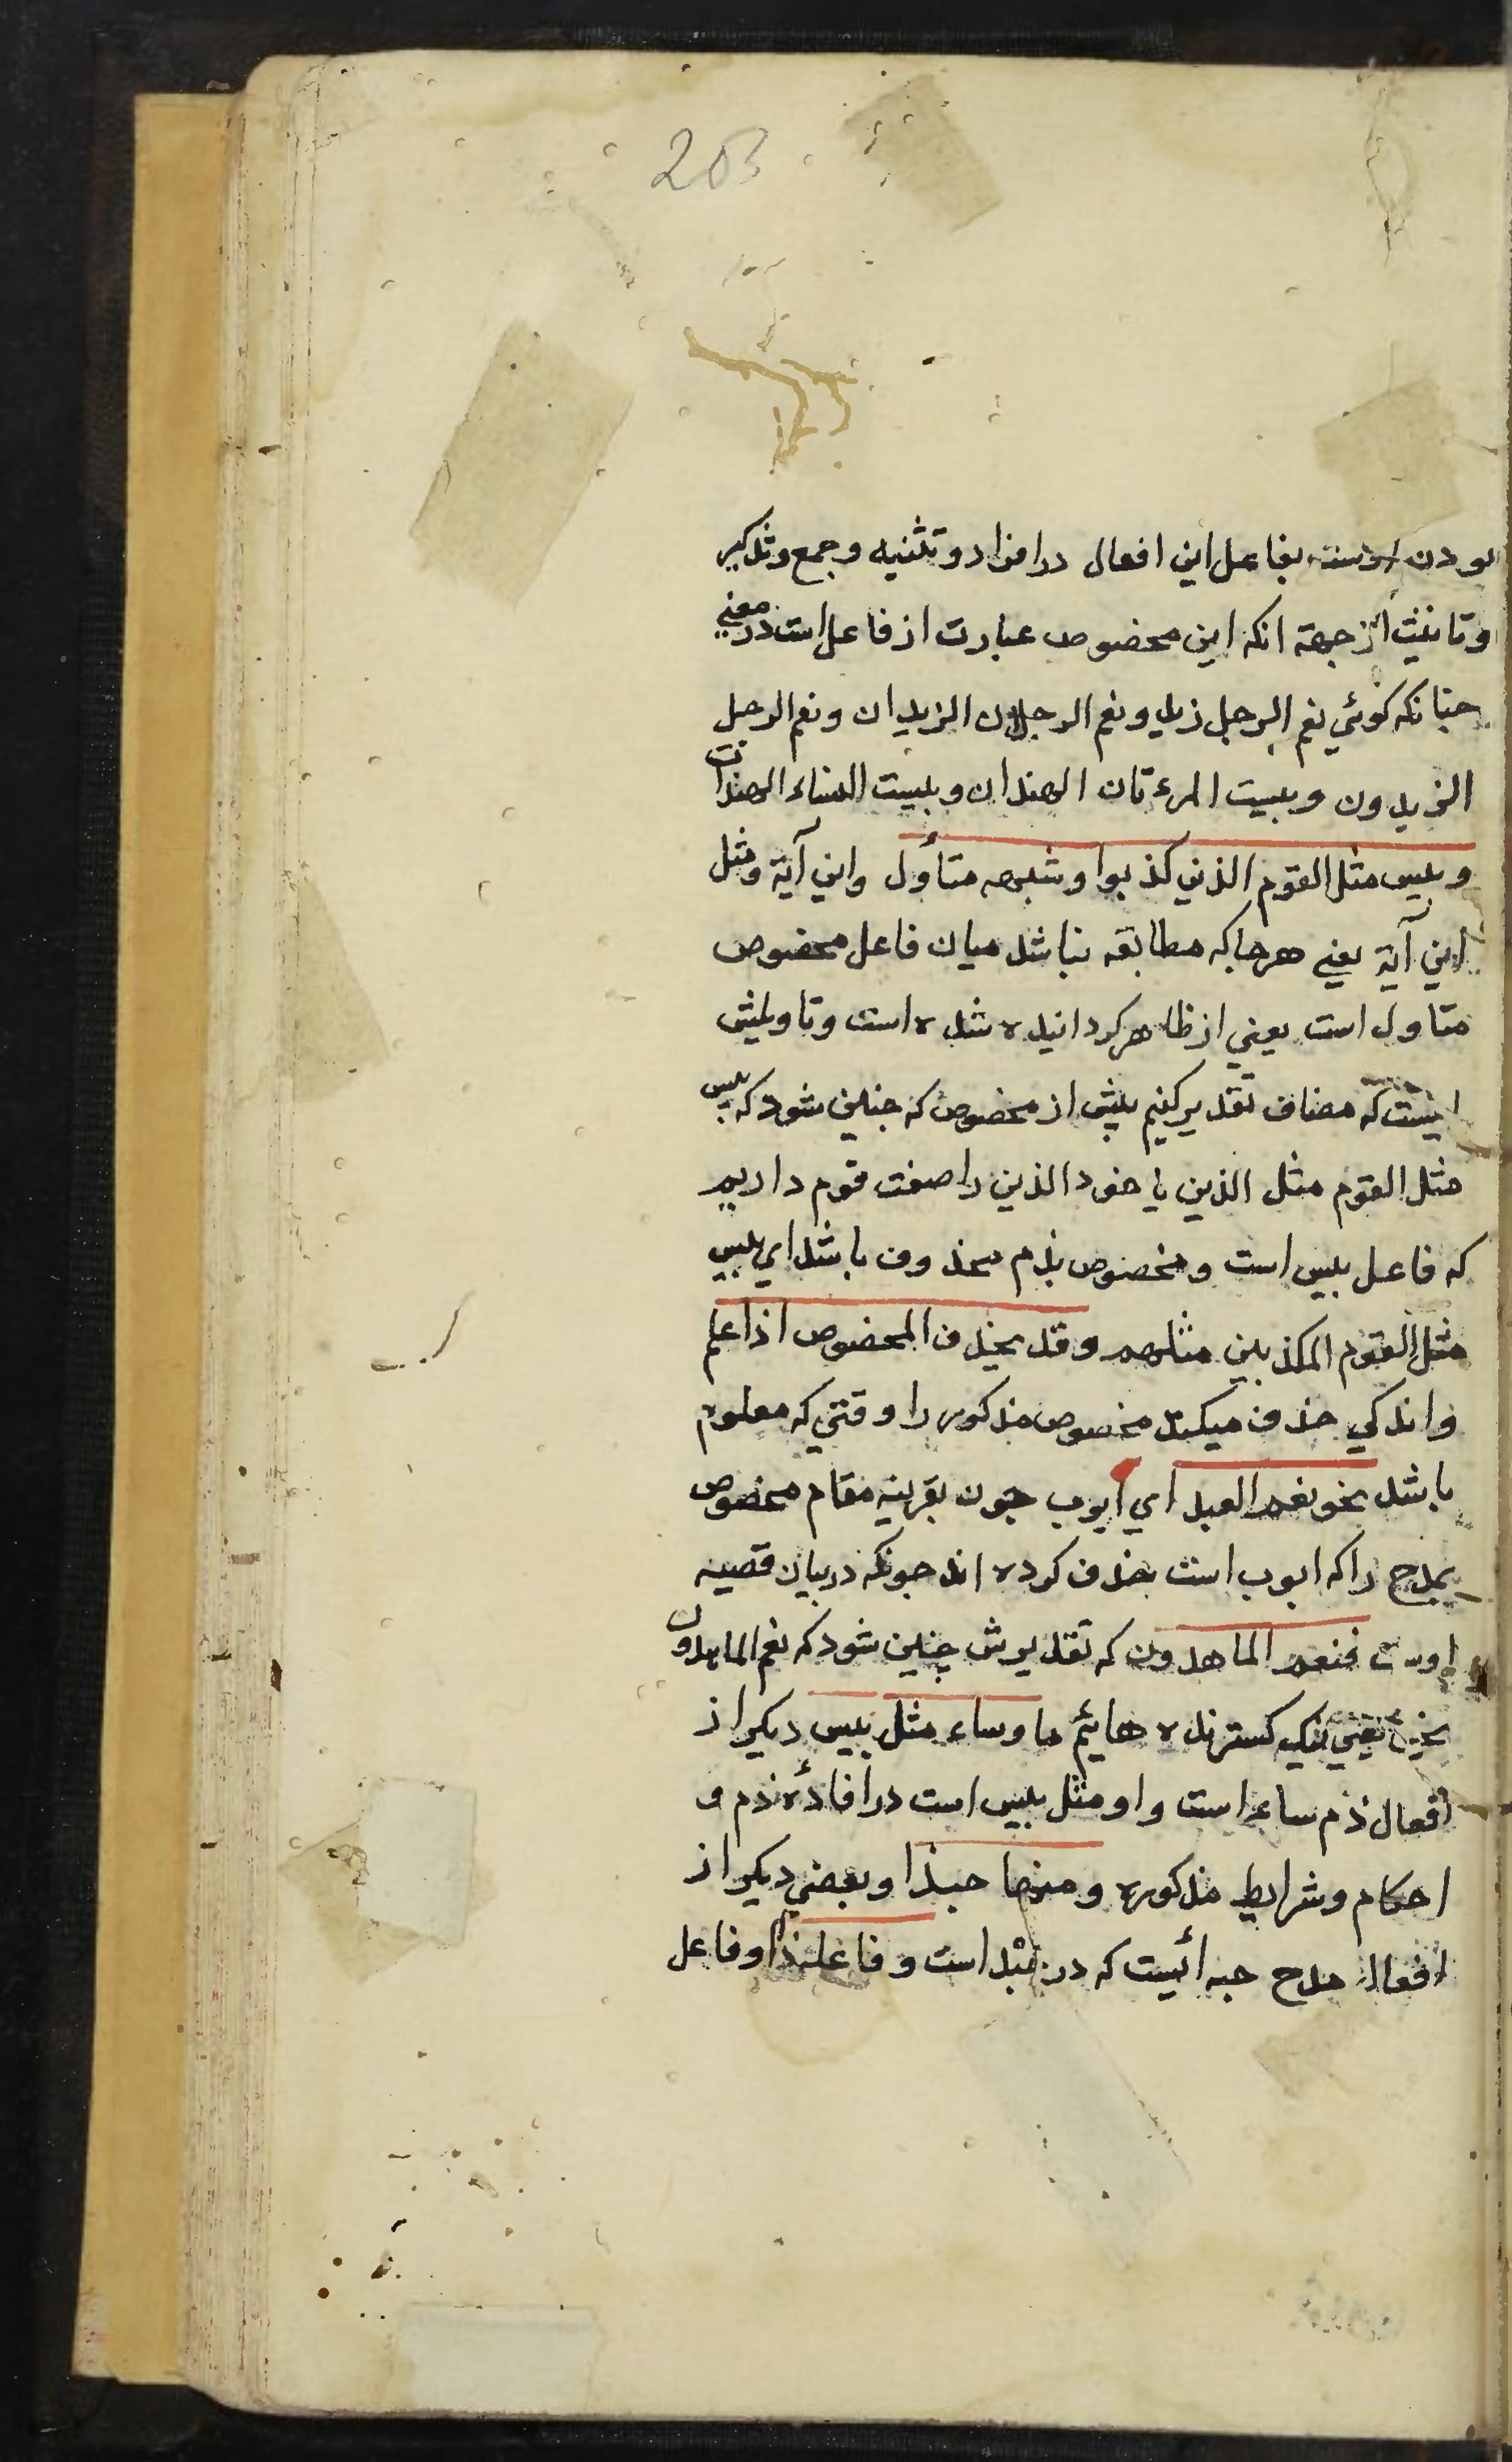 203
بودن اوست بفاعل این افعال در افراد و تثنیه و جمع و تذکیر
و تانیث از جهة انکه این مخصوص عبارت از فاعل است در معنی
چنانکه کوئی نعم الرجل زید و نعم الرجلان الزیدان و نعم الرجل
الزیدون و بییت المرءتان الهندان و بییت النساء الهندات
و بیس مثل القوم الذین کذبوا و شبهه متأول و این آیة و مثل
این آیة یعنی هرجا که مطابقه نباشد میان فاعل مخصوص
متاول است یعنی از ظاهر کردانیده شده است و تاویلش
اینست که مضاف تقدیر کنیم پیش از مخصوص که چنین شود که بیس
مثل القوم مثل الذین یا خود الذین را صفت قوم داریم
که فاعل بیس است و مخصوص بذم محذوف باشد ای بیس
مثل القوم المکذبین مثلهم و قد یحذف المخصوص اذا علم
و اندکی حذف میکند مخصوص مذکور را وقتی که معلوم
باشد نحو نعم العبد ای ایوب چون بقرینه مقام مخصوص
بمدح را که ایوب است حذف کرده اند چونکه در بیان قصیه
اوست فنعم الماهدون که تقدیرش چنین شود که نعم الماهدون
نحن یعنی نیک کسترنده هایئم ما و ساء مثل بیس دیکر از
افعال ذم ساء است و او مثل بیس است در افادهٔ ذم و
احکام و شرایط مذکوره و منها حبذا و بعضی دیکر از
افعال مدح حبه ائیست که در حبذا است و فاعله ذا و فاعل